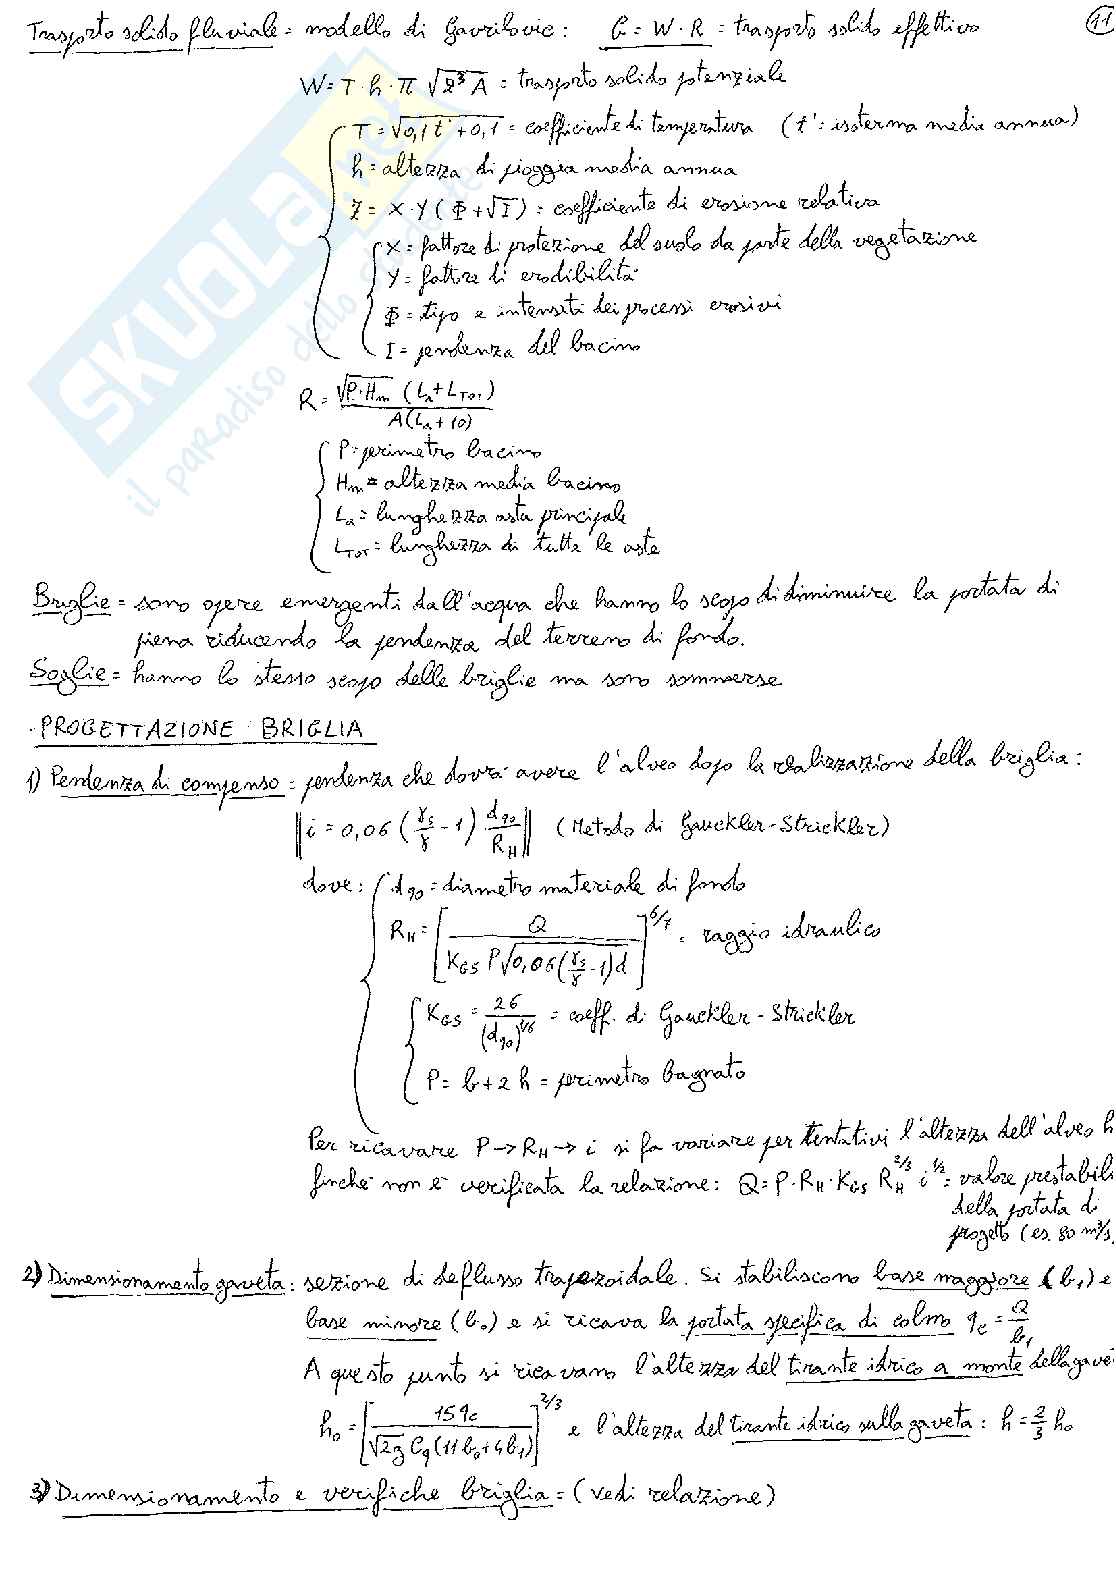 11
Trasporto solido fluviale = modello di Gavrilovic : G = W · R = trasporto solido effettivo
W = T · h · π √Z³ A = trasporto solido potenziale
T = √0,1 t' + 0,1 = coefficiente di temperatura (t' = isoterma media annua)
h = altezza di pioggia media annua
Z = X · Y (Φ + √I) = coefficiente di erosione relativa
X = fattore di protezione del suolo da parte della vegetazione
Y = fattore di erodibilità
Φ = tipo e intensità dei processi erosivi
I = pendenza del bacino
R = √P · Hm (La + LTOT) / A (La + 10)
P = perimetro bacino
Hm = altezza media bacino
La = lunghezza asta principale
LTOT = lunghezza di tutte le aste
Briglie = sono opere emergenti dall'acqua che hanno lo scopo di diminuire la portata di
piena riducendo la pendenza del terreno di fondo.
Soglie = hanno lo stesso scopo delle briglie ma sono sommerse
· PROGETTAZIONE BRIGLIA
1) Pendenza di compenso = pendenza che dovrà avere l'alveo dopo la realizzazione della briglia :
i = 0,06 (γs/γ - 1) d90/RH (Metodo di Gauckler-Strickler)
dove : d90 = diametro materiale di fondo
RH = [Q / KGS P √0,06 (γs/γ - 1) d]^6/7 = raggio idraulico
KGS = 26 / (d90)^1/6 = coeff. di Gauckler-Strickler
P = b + 2 h = perimetro bagnato
Per ricavare P → RH → i si fa variare per tentativi l'altezza dell'alveo h
finché non è verificata la relazione : Q = P · RH · KGS RH^2/3 i^1/2 = valore prestabili
della portata di
progetto (es. 80 m³/s
2) Dimensionamento gaveta : sezione di deflusso trapezoidale. Si stabiliscono base maggiore (b1) e
base minore (b0) e si ricava la portata specifica di colmo qc = Q/b1
A questo punto si ricavano l'altezza del tirante idrico a monte della gave
h0 = [15 qc / √2g Cq (11 b0 + 4 b1)]^2/3 e l'altezza del tirante idrico sulla gaveta : h = 2/3 h0
3) Dimensionamento e verifiche briglia = (vedi relazione)
SKUOLA.net
il paradiso dello